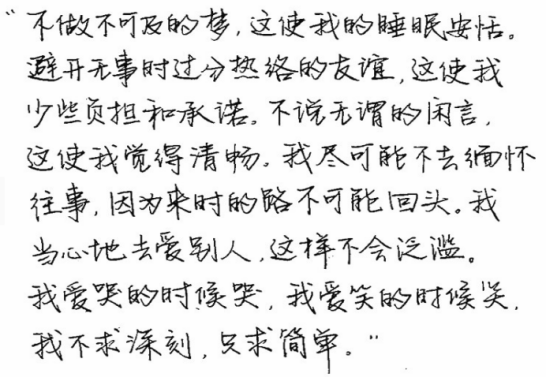 “不做不可及的梦,这使我的睡眠安恬。
避开无事时过分热络的友谊,这使我
少些负担和承诺。不说无谓的闲言,
这使我觉得清畅。我尽可能不去缅怀
往事,因为来时的路不可能回头。我
当心地去爱别人,这样不会泛滥。
我爱哭的时候哭,我爱笑的时候笑,
我不求深刻,只求简单。”